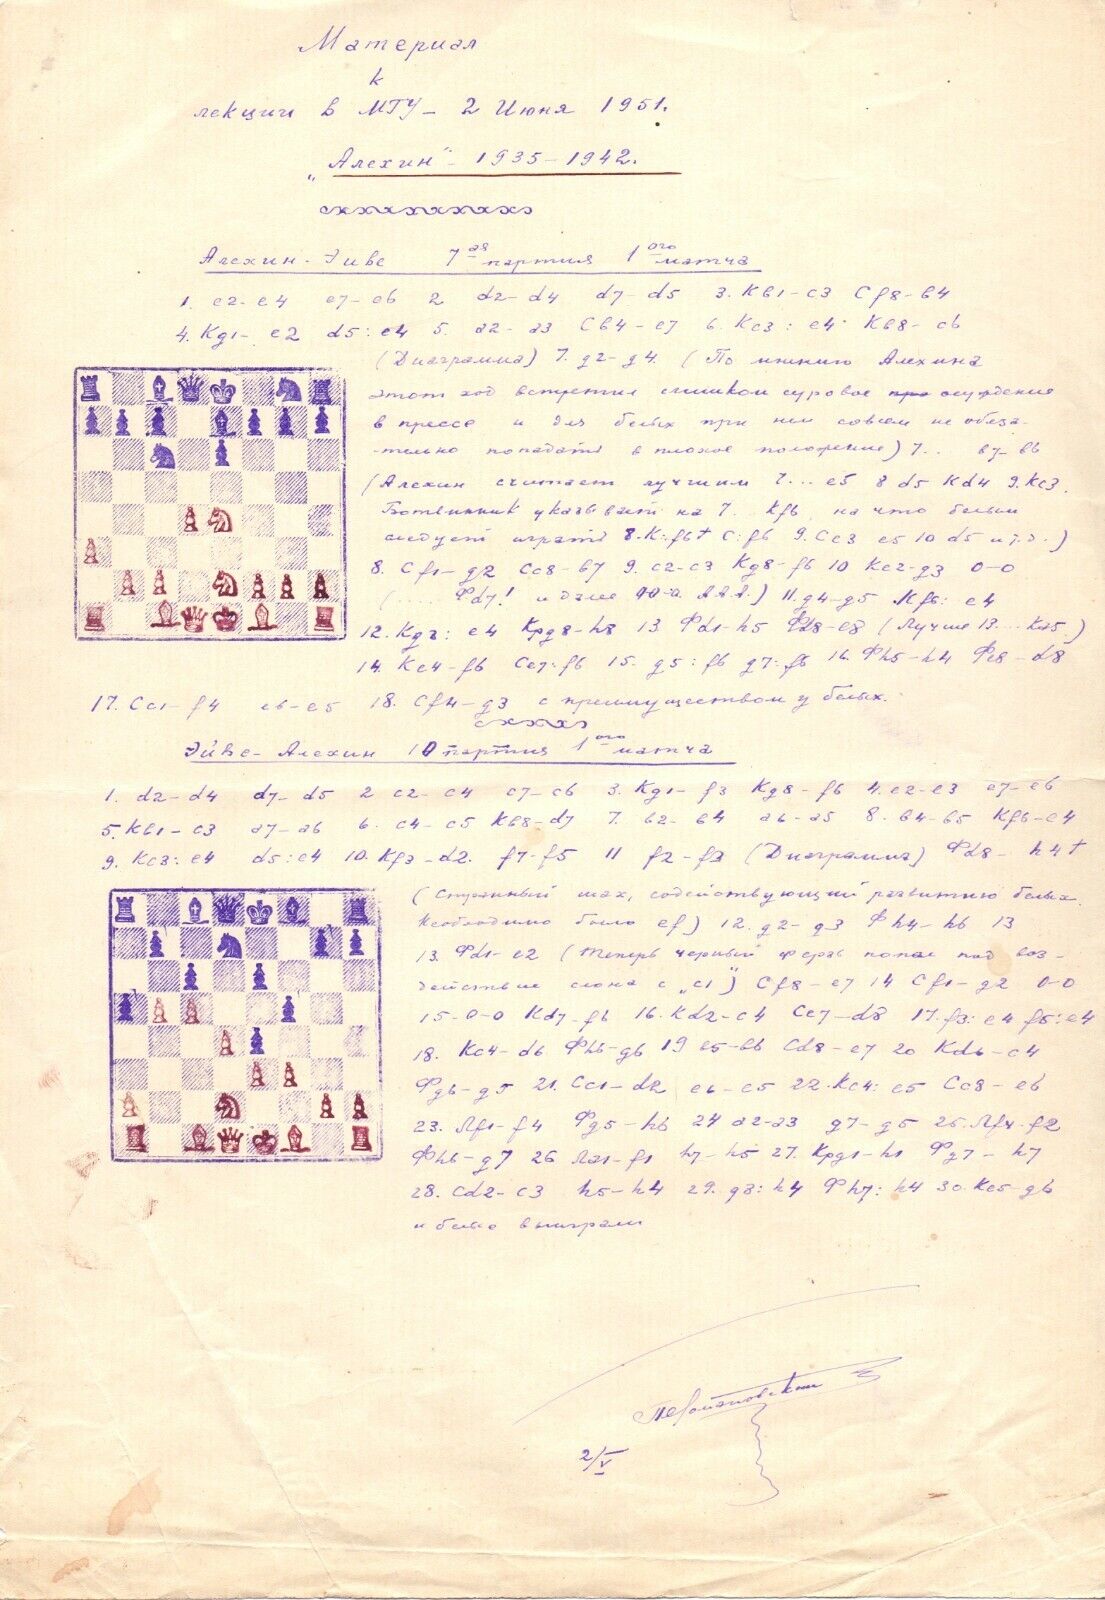 Материал
к
лекции в МГУ – 2 Июня 1951.
„Алехин" – 1935–1942.
Алехин – Эйве 7ая партия 1ого матча
1. e2–e4 e7–e6 2 d2–d4 d7–d5 3. Кb1–c3 Cf8–b4
4. Кg1–e2 d5:e4 5. a2–a3 Cb4–e7 6. Кc3:e4 Кb8–c6
(Диаграмма) 7. g2–g4. (По мнению Алехина
этот ход встретил слишком суровое осуждение
в прессе и для белых при нем совсем не обяза-
-тельно попадать в плохое положение) 7... b7–b6
(Алехин считает лучшим 7... e5 8 d5 Кd4 9. Кc3.
Ботвинник указывает на 7... Кf6, на что белым
следует играть 8. К:f6+ C:f6 9. Ce3 e5 10 d5 и т.д.)
8. Cf1–g2 Cc8–b7 9. c2–c3 Кg8–f6 10 Кe2–g3 0–0
(.... Фd7! и далее 0-0-0.) 11. g4–g5 Кf6:e4
12. Кg3:e4 Крg8–h8 13. Фd1–h5 Фd8–e8 (Лучше 13... Кd5.)
14. Кe4–f6 Ce7:f6 15. g5:f6 g7:f6 16. Фh5–h4 Фe8–d8
17. Cc1–f4 e6–e5 18. Cf4–g3 с преимуществом у белых.
Эйве – Алехин 10 партия 1ого матча
1. d2–d4 d7–d5 2 c2–c4 c7–c6 3. Кg1–f3 Кg8–f6 4. e2–e3 e7–e6
5. Кb1–c3 a7–a6 6. c4–c5 Кb8–d7 7. b2–b4 a6–a5 8. b4–b5 Кf6–e4
9. Кc3:e4 d5:e4 10. Кf3–d2. f7–f5 11 f2–f3 (Диаграмма) Фd8–h4+
(Странный шах, содействующий развитию белых.
Необходимо было ef) 12. g2–g3 Фh4–h6 13
13. Фd1–e2 (Теперь черный ферзь попал под воз-
действие слона с „c1") Cf8–e7 14 Cf1–g2 0–0
15–0–0 Кd7–f6 16. Кd2–c4 Ce7–d8 17. f3:e4 f5:e4
18. Кc4–d6 Фh6–g6 19 e5–b6 Cd8–e7 20 Кd6–c4
Фg6–g5 21. Cc1–d2 e6–e5 22. Кc4:e5 Cc8–e6
23. Лf1–f4 Фg5–h6 24 a2–a3 g7–g5 25. Лf4–f2
Фh6–g7 26 Лa1–f1 h7–h5 27. Крg1–h1 Фg7–h7
28. Cd2–c3 h5–h4 29. g3:h4 Фh7:h4 30. Кe5–g6
и белые выиграли
ПРомановский
2/V